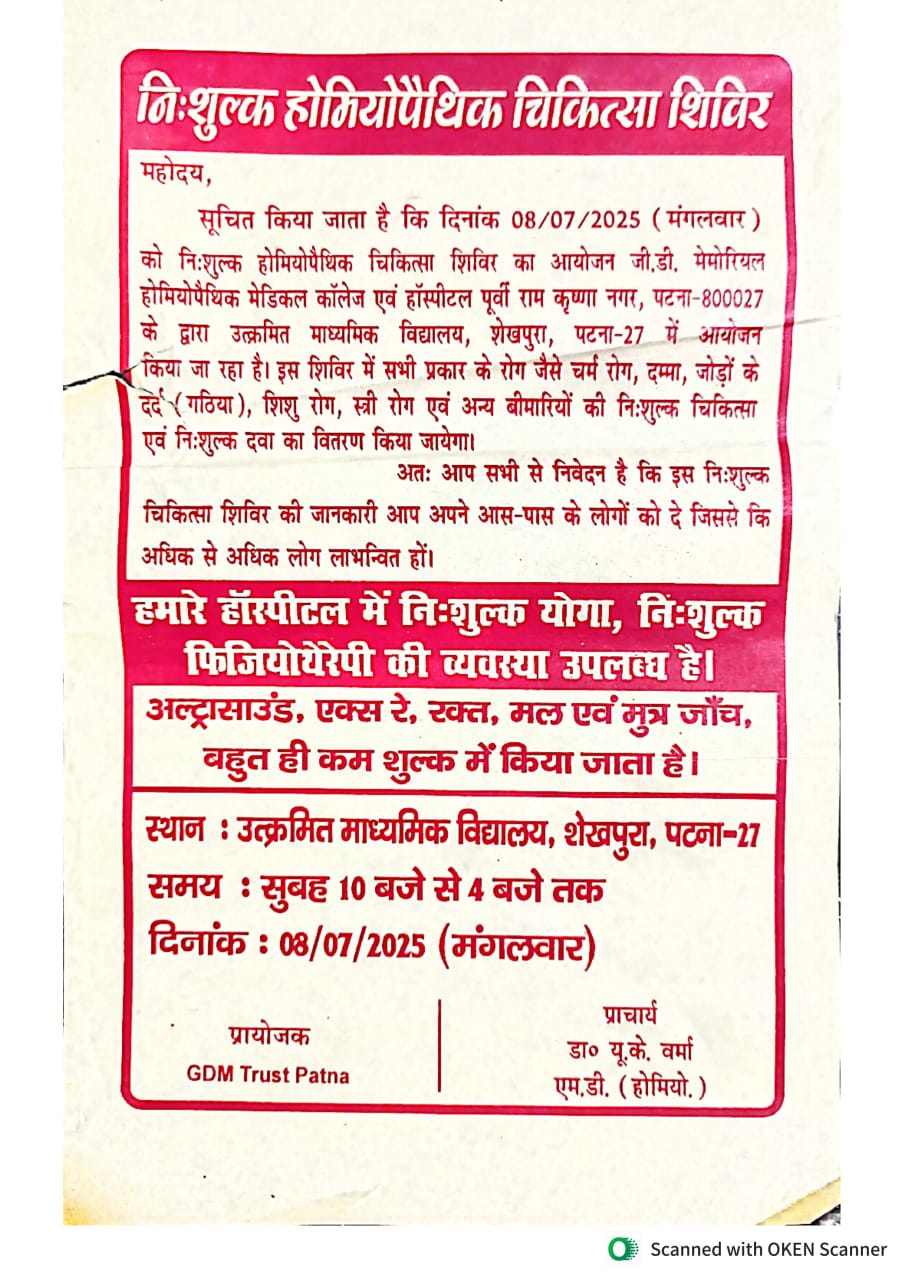 नि:शुल्क होमियोपैथिक चिकित्सा शिविर
महोदय,
सूचित किया जाता है कि दिनांक 08/07/2025 (मंगलवार)
को नि:शुल्क होमियोपैथिक चिकित्सा शिविर का आयोजन जी.डी. मेमोरियल
होमियोपैथिक मेडिकल कॉलेज एवं हॉस्पीटल पूर्वी राम कृष्णा नगर, पटना-800027
के द्वारा उत्क्रमित माध्यमिक विद्यालय, शेखपुरा, पटना-27 में आयोजन
किया जा रहा है। इस शिविर में सभी प्रकार के रोग जैसे चर्म रोग, दम्मा, जोड़ों के
दर्द (गठिया), शिशु रोग, स्त्री रोग एवं अन्य बीमारियों की नि:शुल्क चिकित्सा
एवं नि:शुल्क दवा का वितरण किया जायेगा।
अत: आप सभी से निवेदन है कि इस नि:शुल्क
चिकित्सा शिविर की जानकारी आप अपने आस-पास के लोगों को दे जिससे कि
अधिक से अधिक लोग लाभन्वित हों।
हमारे हॉस्पीटल में नि:शुल्क योगा, नि:शुल्क
फिजियोथैरेपी की व्यवस्था उपलब्ध है।
अल्ट्रासाउंड, एक्स रे, रक्त, मल एवं मुत्र जाँच,
बहुत ही कम शुल्क में किया जाता है।
स्थान : उत्क्रमित माध्यमिक विद्यालय, शेखपुरा, पटना-27
समय : सुबह 10 बजे से 4 बजे तक
दिनांक : 08/07/2025 (मंगलवार)
प्रायोजक
GDM Trust Patna
प्राचार्य
डा० यू.के. वर्मा
एम.डी. (होमियो.)
Scanned with OKEN Scanner